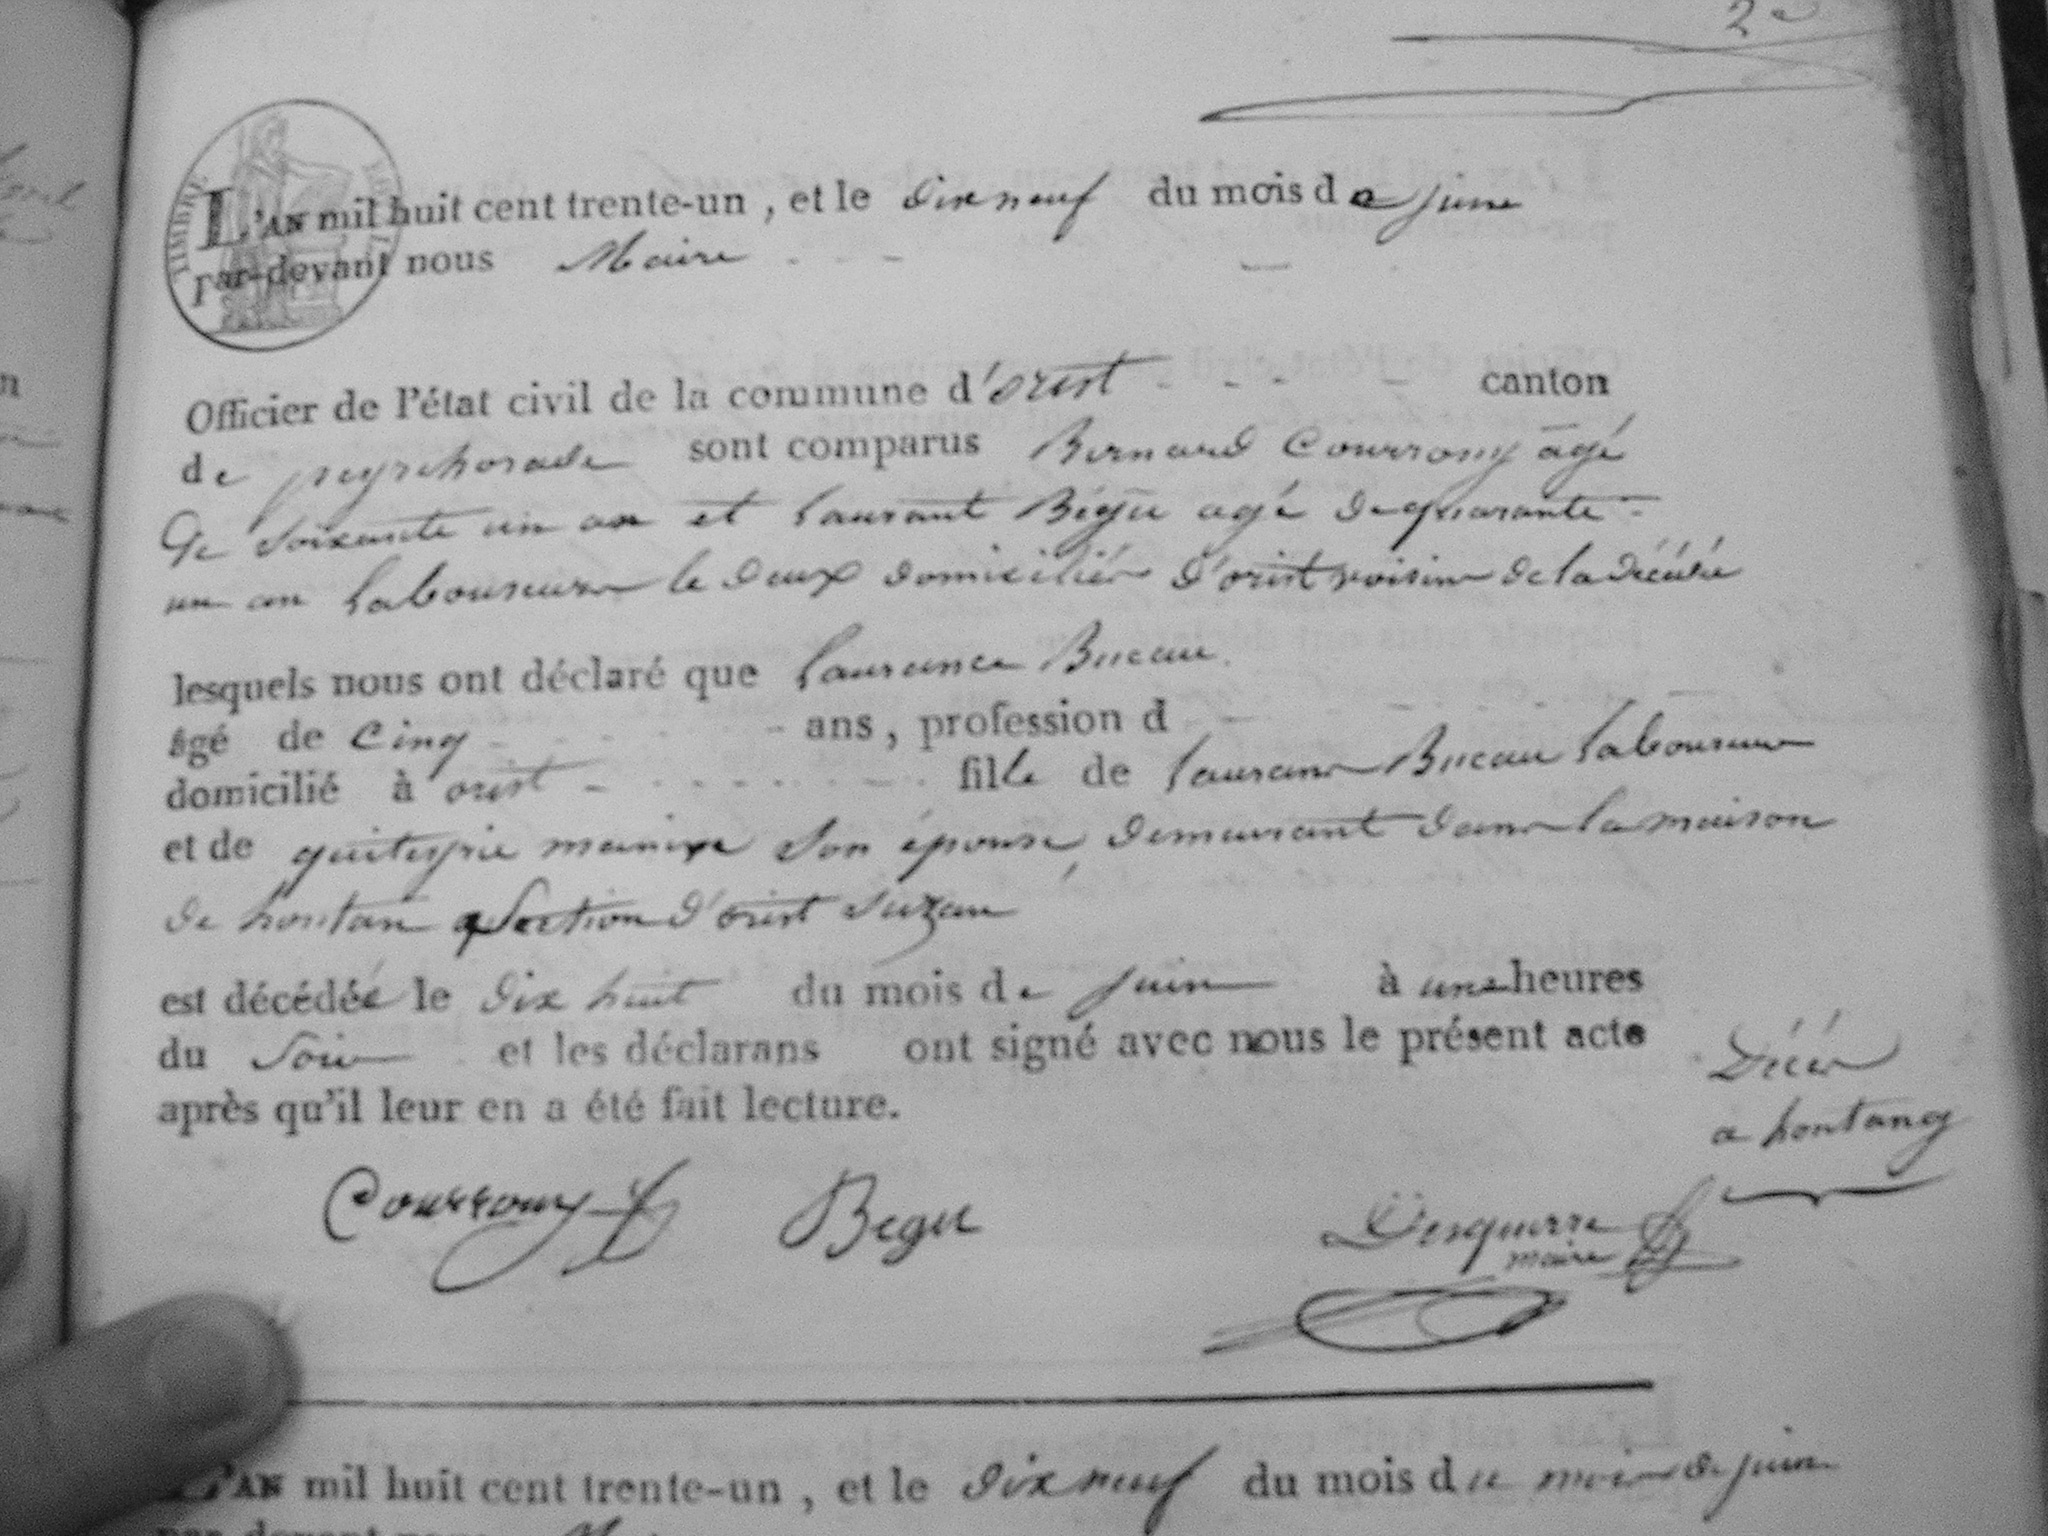 2e
TIMBRE ROYAL
L'AN mil huit cent trente-un, et le dixneuf du mois de juin
Par-devant nous Maire
Officier de l'état civil de la commune d'orist canton
de peyrehorade sont comparus Bernard Courrouy âgé
de soixante un an et laurant Bégu agé de quarante
un an laboureurs le deux domiciliés d'orist voisins de la décédée
lesquels nous ont déclaré que laurance Bucau
âgé de cinq ans, profession d
domicilié à orist fille de laurans Bucau laboureur
et de quiteyrie mainxe son épouse, demeurant dans la maison
de hontan section d'orist suzan
est décédée le dix huit du mois de juin à une heures
du soir et les déclarans ont signé avec nous le présent acte
après qu'il leur en a été fait lecture.
Décés
a hontang
Courrouy Begu Desquerre
maire
L'AN mil huit cent trente-un, et le dix neuf du mois du mois de juin
par-devant nous